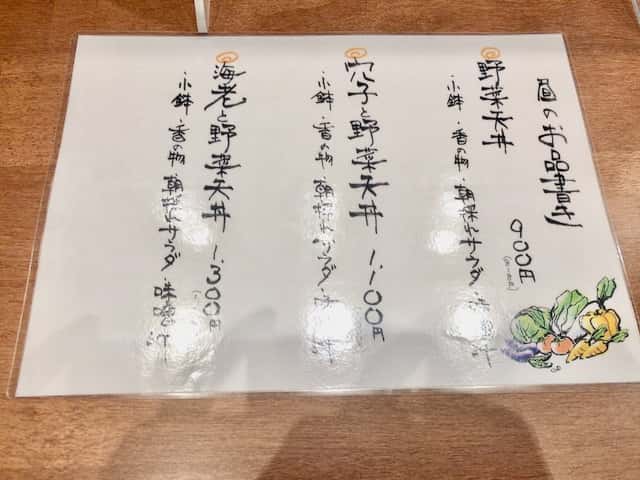 昼のお品書き
野菜天丼
900円
・小鉢・香の物・朝採れサラダ
穴子と野菜天丼 1,100円
・小鉢・香の物・朝採れサラダ
海老と野菜天丼 1,300円
・小鉢・香の物・朝採れサラダ・味噌汁